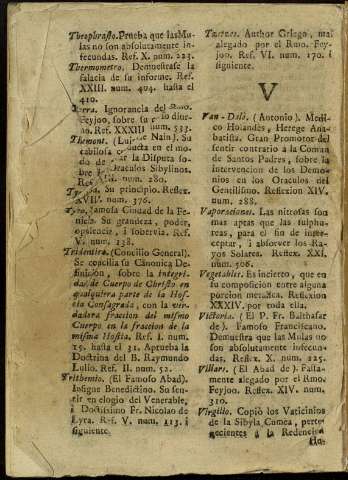 Theophrasto. Prueba que las Mu-
las no son absolutamente in-
fecundas. Ref. X. num. 223.
Thermometro. Demuestrase la
falacia de su informe. Ref.
XXIII. num. 404. hasta el
410.
Ignorancia del Rmo.
Feyjoo, sobre su diur-
Ref. XXXIII num. 533.
Themont. Nain). Su
cabilosa en el mo-
do de la Disputa so-
Oraculos Sibylinos.
num. 280.
Su principio. Reflex.
XVII. num. 376.
famosa Ciudad de la Fe-
nicia. Su grandeza, poder,
opulencia, i sobervia. Ref.
V. num. 138.
Tridentino. (Concilio General).
Se concilia su Canonica De-
finicion, sobre la integri-
dad de Cuerpo de Christo en
qualquiera parte de la Hos-
tia Consagrada, con la ver-
dadera fraccion del mismo
Cuerpo en la fraccion de la
misma Hostia. Ref. I. num.
15. hasta el 31. Aprueba la
Doctrina del B. Raymundo
Lulio. Ref. II. num. 52.
Trithemio. (El Famoso Abad).
Insigne Benedictino. Su sen-
tir en elogio del Venerable,
i Doctissimo Fr. Nicolao de
Lyra. Ref. V. num. 113. i
siguiente.
Author Griego, mal
alegado por el Rmo. Fey-
joo. Ref. VI. num. 170. i
siguiente.
V
Van-Dalé, (Antonio). Medi-
co Holandés, Herege Ana-
batista. Gran Promotor del
sentir contrario à la Comun
de Santos Padres, sobre la
intervencion de los Demo-
nios en los Oraculos del
Gentilismo. Reflexion XIV.
num. 288.
Vaporaciones. Las nitrosas son
mas aptas que las sulphu-
reas, para el fin de inter-
ceptar, i absorver los Ra-
yos Solares. Reflex. XXI.
num. 406.
Vegetables. Es incierto, que en
su composicion entre alguna
porcion metalica. Reflexion
XXXIV. por toda ella.
Victoria. (El P. Fr. Balthasar
de). Famoso Franciscano.
Demuestra que las Mulas no
son absolutamente infecun-
das. Reflex. X. num. 225.
Villars. (El Abad de). Falsa-
mente alegado por el Rmo.
Feyjoo. Reflex. XIV. num.
310.
Virgilio. Copiò los Vaticinios
de la Sibyla Cumea, perte-
necientes à la Redencion